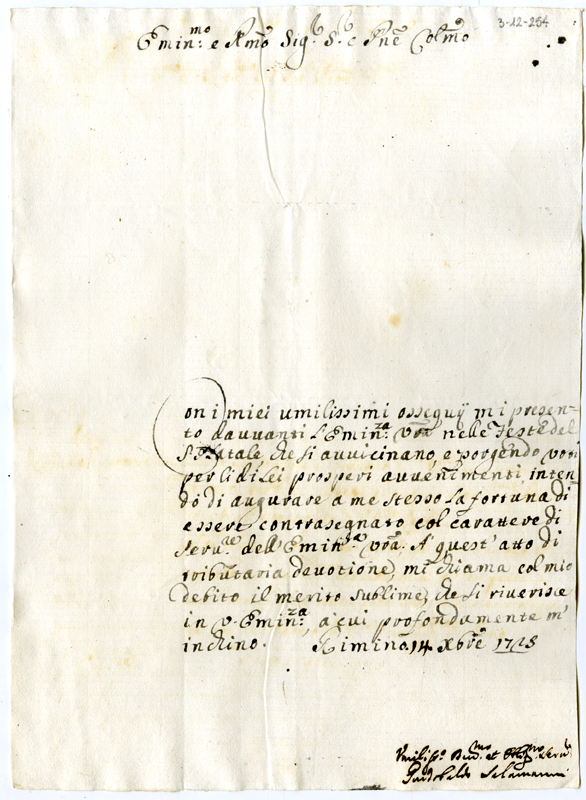 3-12-254
Emin:mo e Rmo Sig:r S:r e Pne Colmo
Con i miei umilissimi ossequÿ mi presen-
to davvanti l'Emin:za vra nelle Feste del
S. Natale che si avvicinano, e porgendo voti
per li di Lei prosperi avvenimenti, inten
do di augurare a me stesso la fortuna di
essere contrasegnato col carattere di
Serv:re dell'Emin:za vra. A' quest'atto di
tributaria devotione, mi chiama col mio
debito il merito sublime, che si riverisce
in v. Emin:za, a' cui profondamente m'
inchino. Rimino 14 Xbre 1728
Umiliss:o Div:mo et Obl:mo Serv:
Guidobaldo